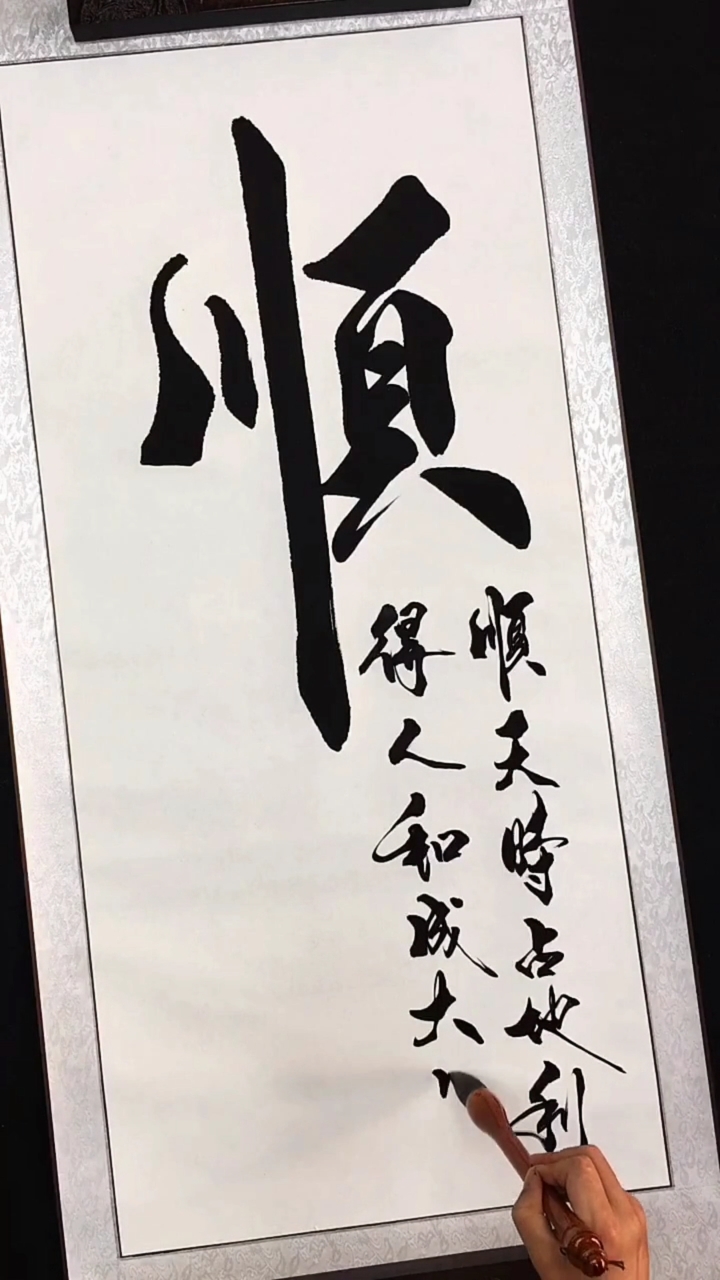 順
順天時占地利
得人和成大